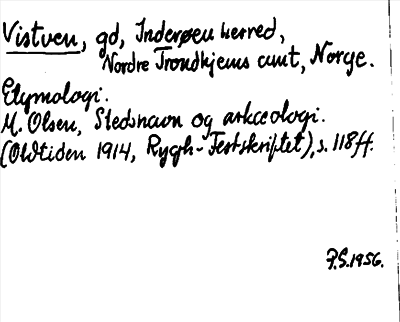 Vistven, gd, Inderøen herred,
Nordre Trondhjems amt, Norge.
Etymologi.
M. Olsen, Stedsnavn og arkæologi.
(Oldtiden 1914, Rygh-Festskriftet), s. 118ff.
P.S.1956.